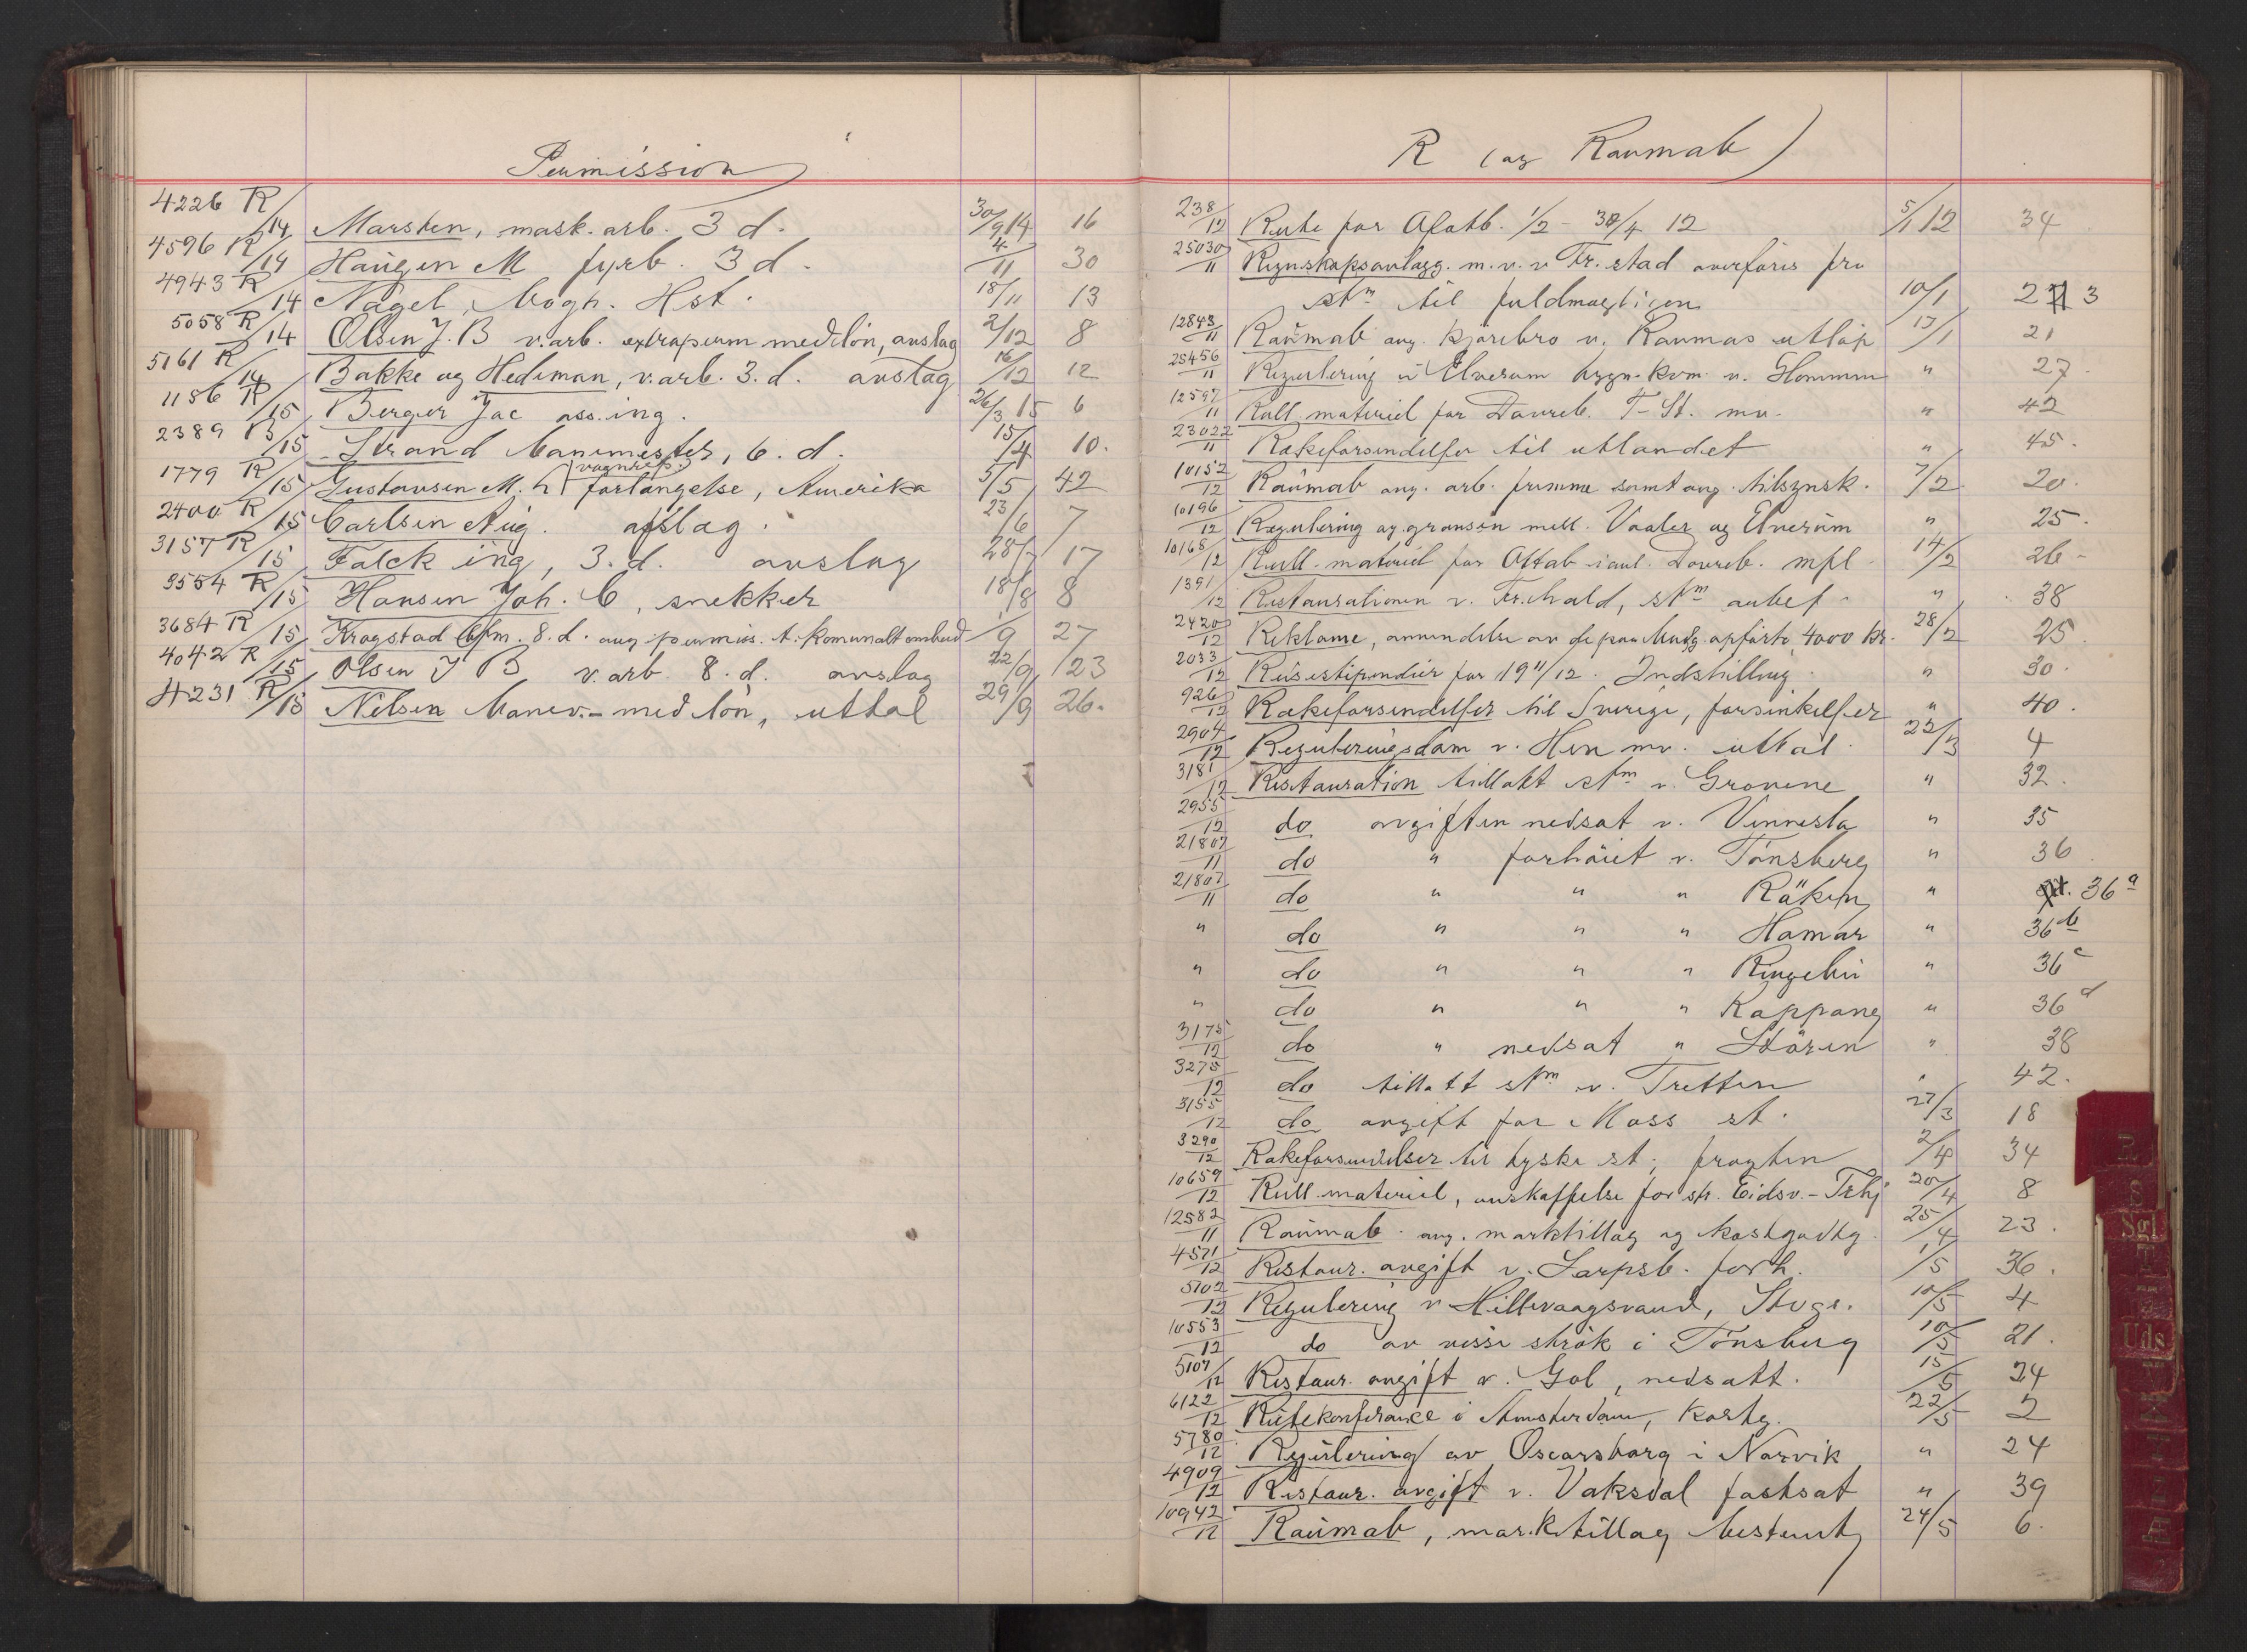 Permission
4226 R/14 Marsten, mask. arb. 3 d. 30/9 14 16
4596 R/14 Haugen M fyrb. 3 d. 4/11 30
4943 R/14 Nagel, Vogn. Hst. 18/11 13
5058 R/14 Olsen J. B v. arb. extraperm med lön, avslag 2/12 8
5161 R/14 Bakke og Hedeman, v. arb. 3. d. avslag 16/12 12
1186 R/15 Berger Jac ass. ing. 26/3 15 6
2389 R/15 Strand Banemester, 6. d. 15/4 10.
1779 R/15 Gustavsen M. vognrep. forlängelse, Amerika 5/5 42
2400 R/15 Carlsen Aug. afslag. 23/6 7
3157 R/15 Falck ing, 3. d. avslag 28/7 17
3554 R/15 Hansen Joh. C, snekker 18/8 8
3684 R/15 Krogstad 8. d. ang permiss. t. komunalt ombud 1/9 27
4042 R/15 Olsen J B v. arb. 8. d. avslag 22/9 23
4231 R/15 Nilsen Banev.- med lön, uttal 29/9 26.
R (og Raumab)
238/12 Rute for Ofotb. 1/2 - 30/4 12 5/1 12 34
25030/11 Regnskapsavlagg. m. v. v Fr. stad overföres fra
stm til fuldmægtigen 10/1 3
12843/11 Raumab ang. kjörebro v. Raumas utlöp 13/1 21
25456/11 Regulering i Elverum bygn. kom. v. Glommen " 27.
12597/11 Rull. materiel for Dovreb. T-St. mv. " 42
23022/11 Rakeforsendelser til utlandet " 45.
10152/12 Raumab ang. arb. fremme samt ang. tilsynsk. 7/2 20.
10196/12 Regulering og gransen mell. Vaaler og Elverum " 25.
10165/12 Rull. materiel for Ofotb i anl. Dovreb. mfl 14/2 26-
1391/12 Restaurationen v. Fr.hald, stm anbef. " 38
2420/12 Reklame, anvendelse av de paa budg. opförte 4000 kr. 28/2 25
2033/12 Reisestipendier for 1911/12. Indstilling. " 30.
926/12 Rakeforsendelser til Sverige, forsinkelser " 40.
2904/12 Reguleringsdam v. Hen mv. uttal. 22/3 4
3181/12 Restauration tillatt stm v. Grovene " 32.
2955/12 do avgiften nedsat v. Vennesla " 35
21807/11 do " forhöiet v. Tönsberg " 36.
21807/11 do " " " Röken " 36 a
" do " " " Hamar " 36 b
" do " " " Ringebu " 36 c
" do " " " Koppang " 36 d
3175/12 do " nedsat " Stören " 38
3275/12 do tillatt stm v. Tretten " 42.
3155/12 do avgift for Moss st. 27/3 18
3290/12 Rakeforsendelser til tyske st; fragten 2/4 34
10659/12 Rull. materiel, anskaffelse for str. Eidsv.- Tkhj 20/4 8
12582/11 Raumab. ang. marktillag og kostgodtg. 25/4 23.
4571/12 Restaur. avgift v. Sarpsb. forh. 1/5 36.
5102/12 Regulering v Hillevaagsvand, Stvgr. 10/5 4
10553/12 do av visse strök i Tönsberg 10/5 21.
5107/12 Restaur. avgift v. Gol, nedsatt. 15/5 24
6122/12 Rutekonferance i Amsterdam, kostg. 22/5 2
5780/12 Regulering av Oscarsborg i Narvik " 24
4909/12 Restaur. avgift v. Vaksdal fastsat " 39
10942/12 Raumab, mark.tillag bestemt 24/5 6.
R
S
Sgl
T
Uds